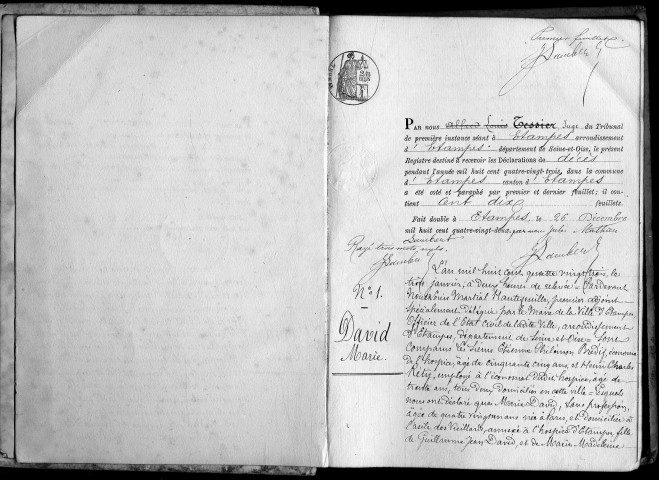 Premier feuillet.
JSambucy
PAR NOUS Alfred Louis Tessier, Juge du Tribunal
de première instance séant à Etampes arrondissement
d'Etampes département de Seine-et-Oise, le présent
Registre destiné à recevoir les Déclarations de décès
pendant l'année mil huit cent quatre-vingt-trois, dans la commune
d'Etampes canton d'Etampes
a été coté et paraphé par premier et dernier feuillet; il con-
tient cent dix feuillets.
Fait double à Etampes, le 26 Décembre
mil huit cent quatre-vingt-deux, par nous Jules Mathieu
Rayé trois mots nuls.
N° 1.
David
Marie.
L'an mil huit cent quatre vingt trois, le
trois janvier, à deux heures de relevée. Pardevant
Nous Louis Martial Hautefeuille, premier adjoint
spécialement délégué par le Maire de la Ville d'Etampes
Officier de l'Etat Civil de ladite Ville, arrondissement
d'Etampes, département de Seine et Oise = Sont
Comparus les Sieurs Etienne Philémon Bredif, économe
de l'hospice, âgé de cinquante cinq ans, et Henri Charles
Réty, employé à l'économat dudit hospice, âgé de
trente ans, tous deux domiciliés en cette ville = Lesquels
nous ont déclaré que Marie David, sans profession,
âgée de quatre vingt un ans née à Paris, et domiciliée à
l'asile des Vieillards, annexé à l'hospice d'Etampes, fille
de Guillaume Jean David, et de Marie Madeleine